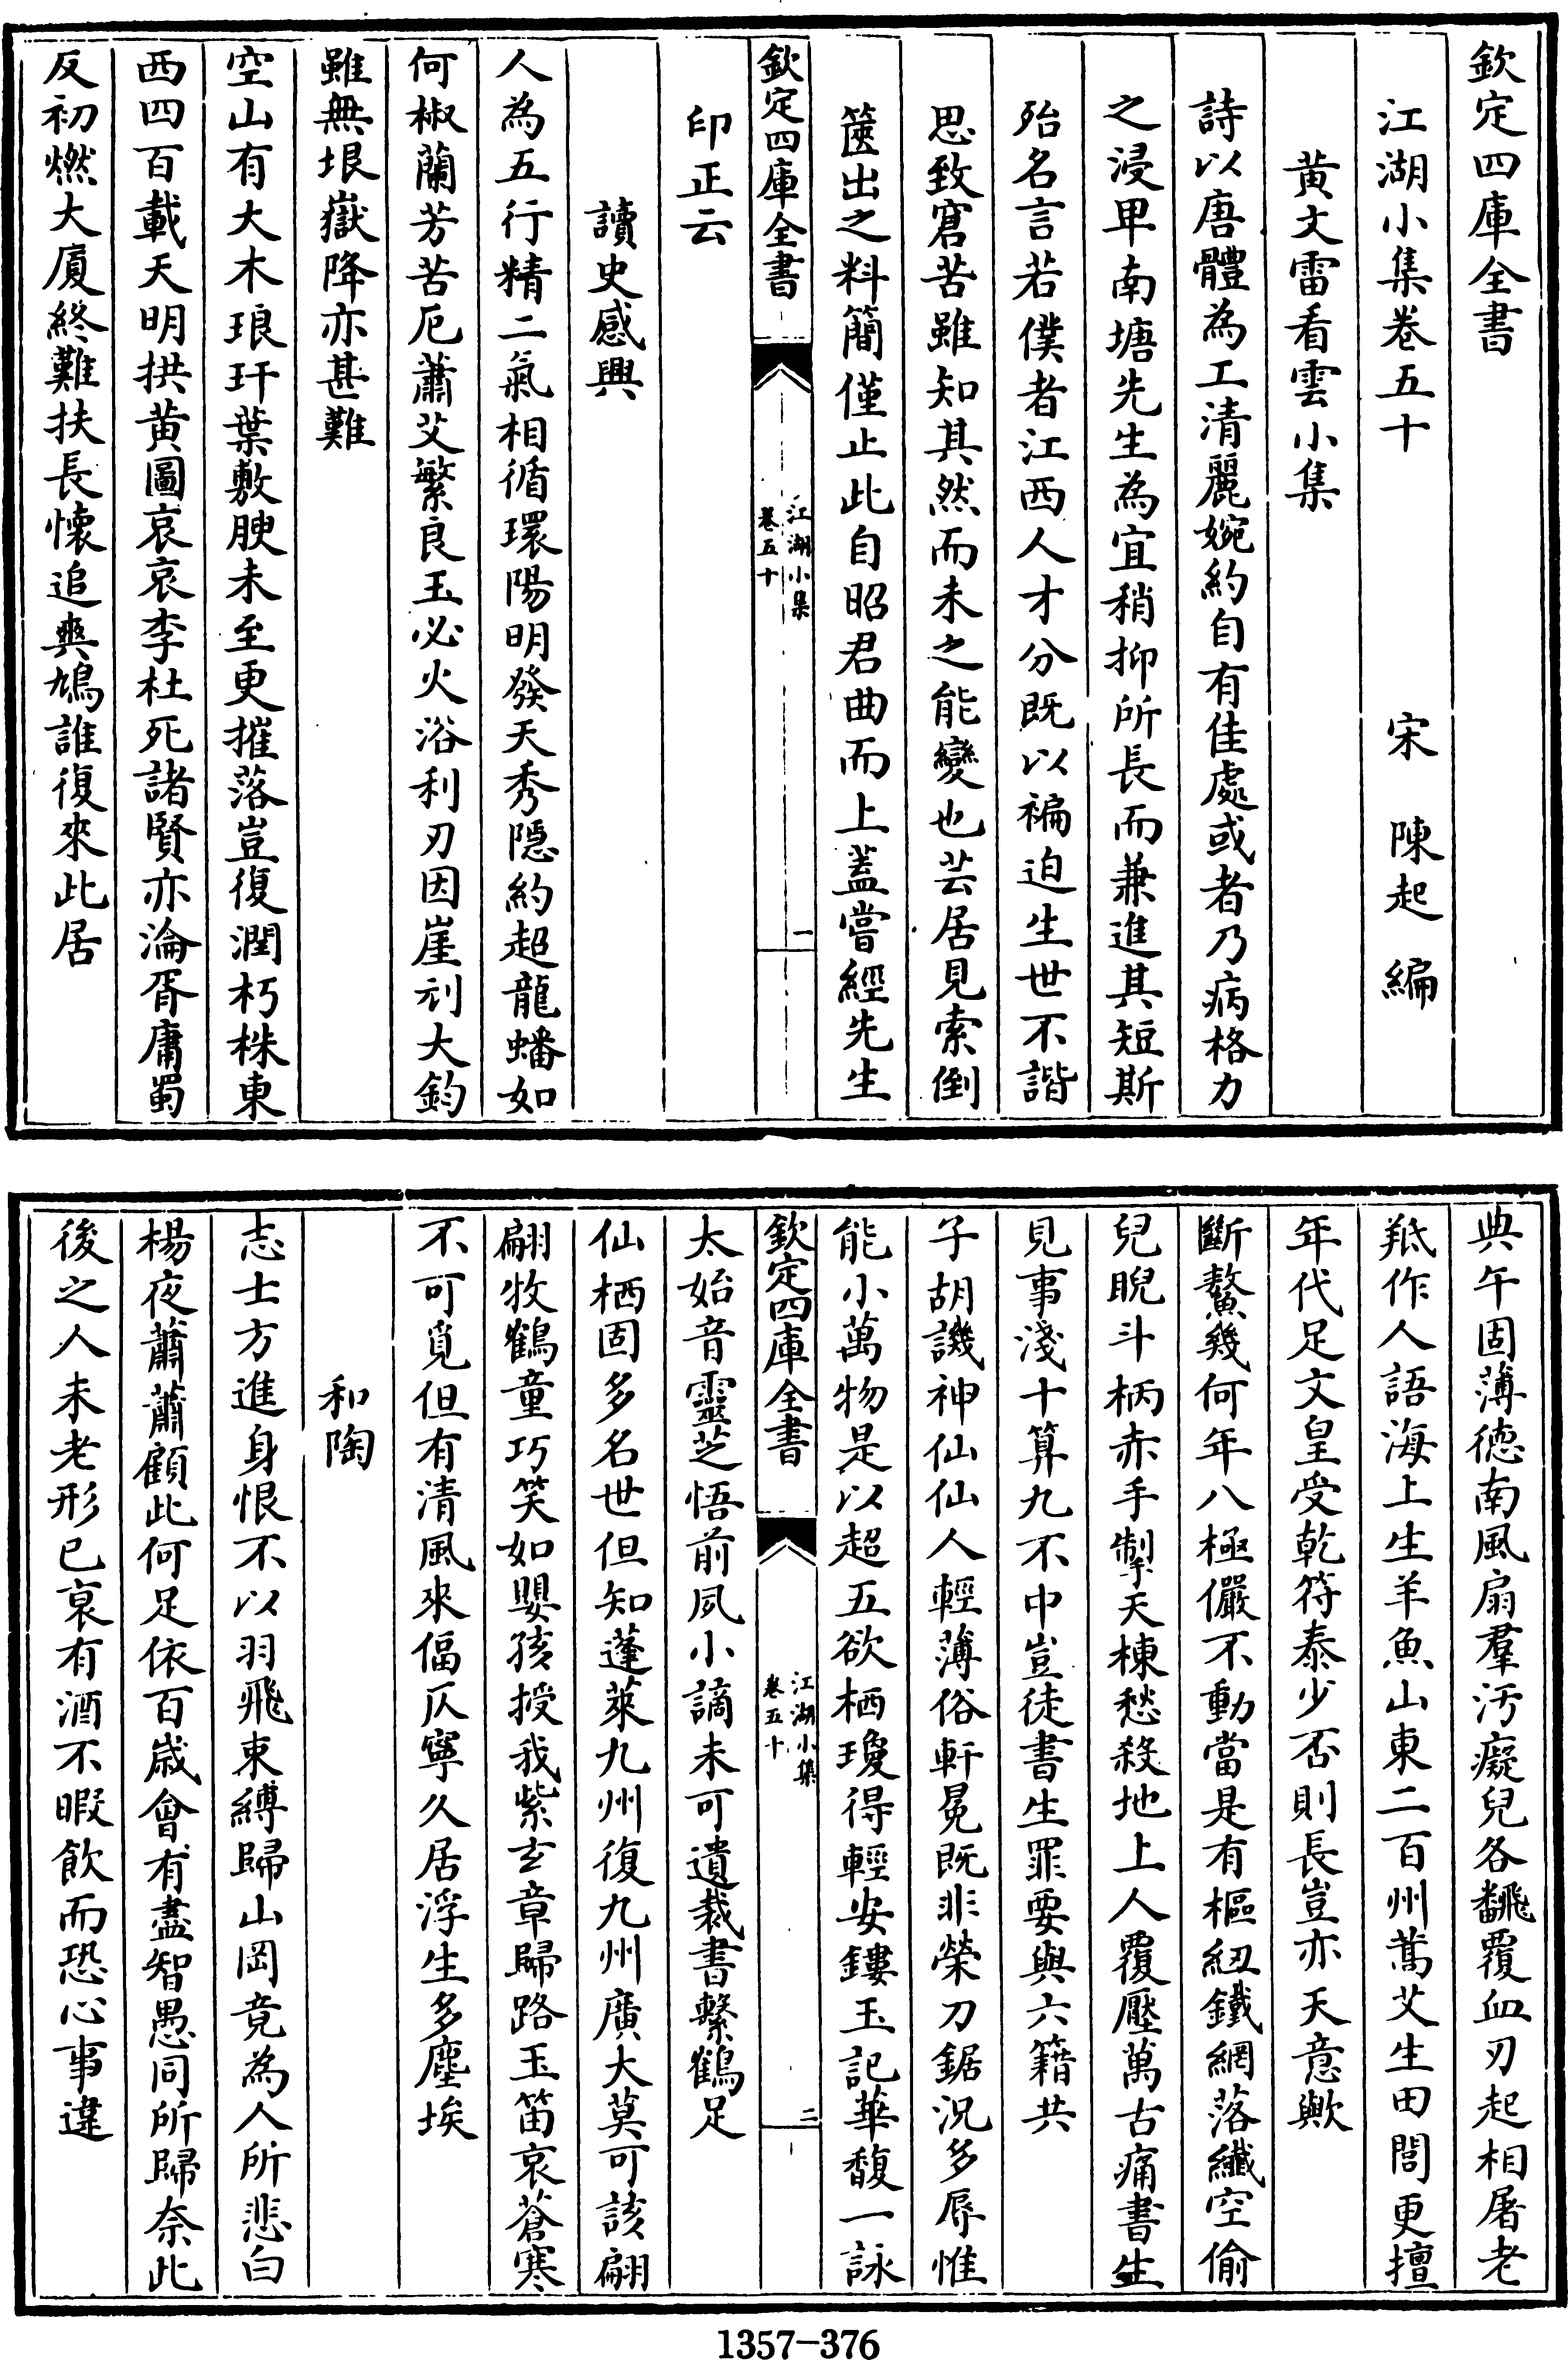 欽定四庫全書
江湖小集卷五十
宋 陳起 編
黄文雷看雲小集
詩以唐體為工清麗婉約自有佳處或者乃病格力
之浸卑南塘先生為宜稍抑所長而兼進其短斯
殆名言若僕者江西人才分既以褊迫生世不諧
思致窘苦雖知其然而未之能變也芸居見索倒
篋出之料簡僅止此自昭君曲而上蓋嘗經先生
欽定四庫全書
江湖小集
卷五十
一
印正云
讀史感興
人為五行精二氣相循環陽明發天秀隱約超龍蟠如
何椒蘭芳苦厄蕭艾繁良玉必火浴利刃因崖刓大鈞
雖無垠嶽降亦甚難
空山有大木琅玕葉敷腴未至更摧落豈復潤朽株東
西四百載天明拱黄圖哀哀李杜死諸賢亦淪胥庸蜀
反初燃大厦終難扶長懷追爽鳩誰復來此居
典午固薄徳南風扇羣汚癡兒各飜覆血刃起相屠老
羝作人語海上生羊魚山東二百州蒿艾生田閭更擅
年代足文皇受乾符泰少否則長豈亦天意歟
斷鰲幾何年八極儼不動當是有樞紐鐵網落纖空偷
兒睨斗柄赤手掣天棟愁殺地上人覆壓萬古痛書生
見事淺十算九不中豈徒書生罪要與六籍共
子胡譏神仙仙人輕薄俗軒冕既非榮刀鋸況多辱惟
能小萬物是以超五欲栖瓊得輕安鏤玉記華馥一詠
欽定四庫全書
江湖小集
卷五十
二
太始音靈芝悟前夙小謫未可遺裁書繫鶴足
仙栖固多名世但知蓬萊九州復九州廣大莫可該翩
翩牧鶴童巧笑如嬰孩授我紫玄章歸路玉笛哀蒼寒
不可覓但有清風來偪仄寧久居浮生多塵埃
和陶
志士方進身恨不以羽飛東縛歸山岡竟為人所悲白
楊夜蕭蕭顧此何足依百歲會有盡智愚同所歸奈此
後之人未老形已衰有酒不暇飲而恐心事違
1357-376